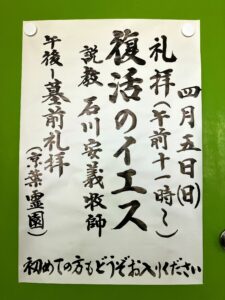 四月五日(日)
礼拝(午前十一時〜)
復活のイエス
説教 石川安義牧師
午後ー墓前礼拝
(京葉霊園)
初めての方もどうぞお入りください